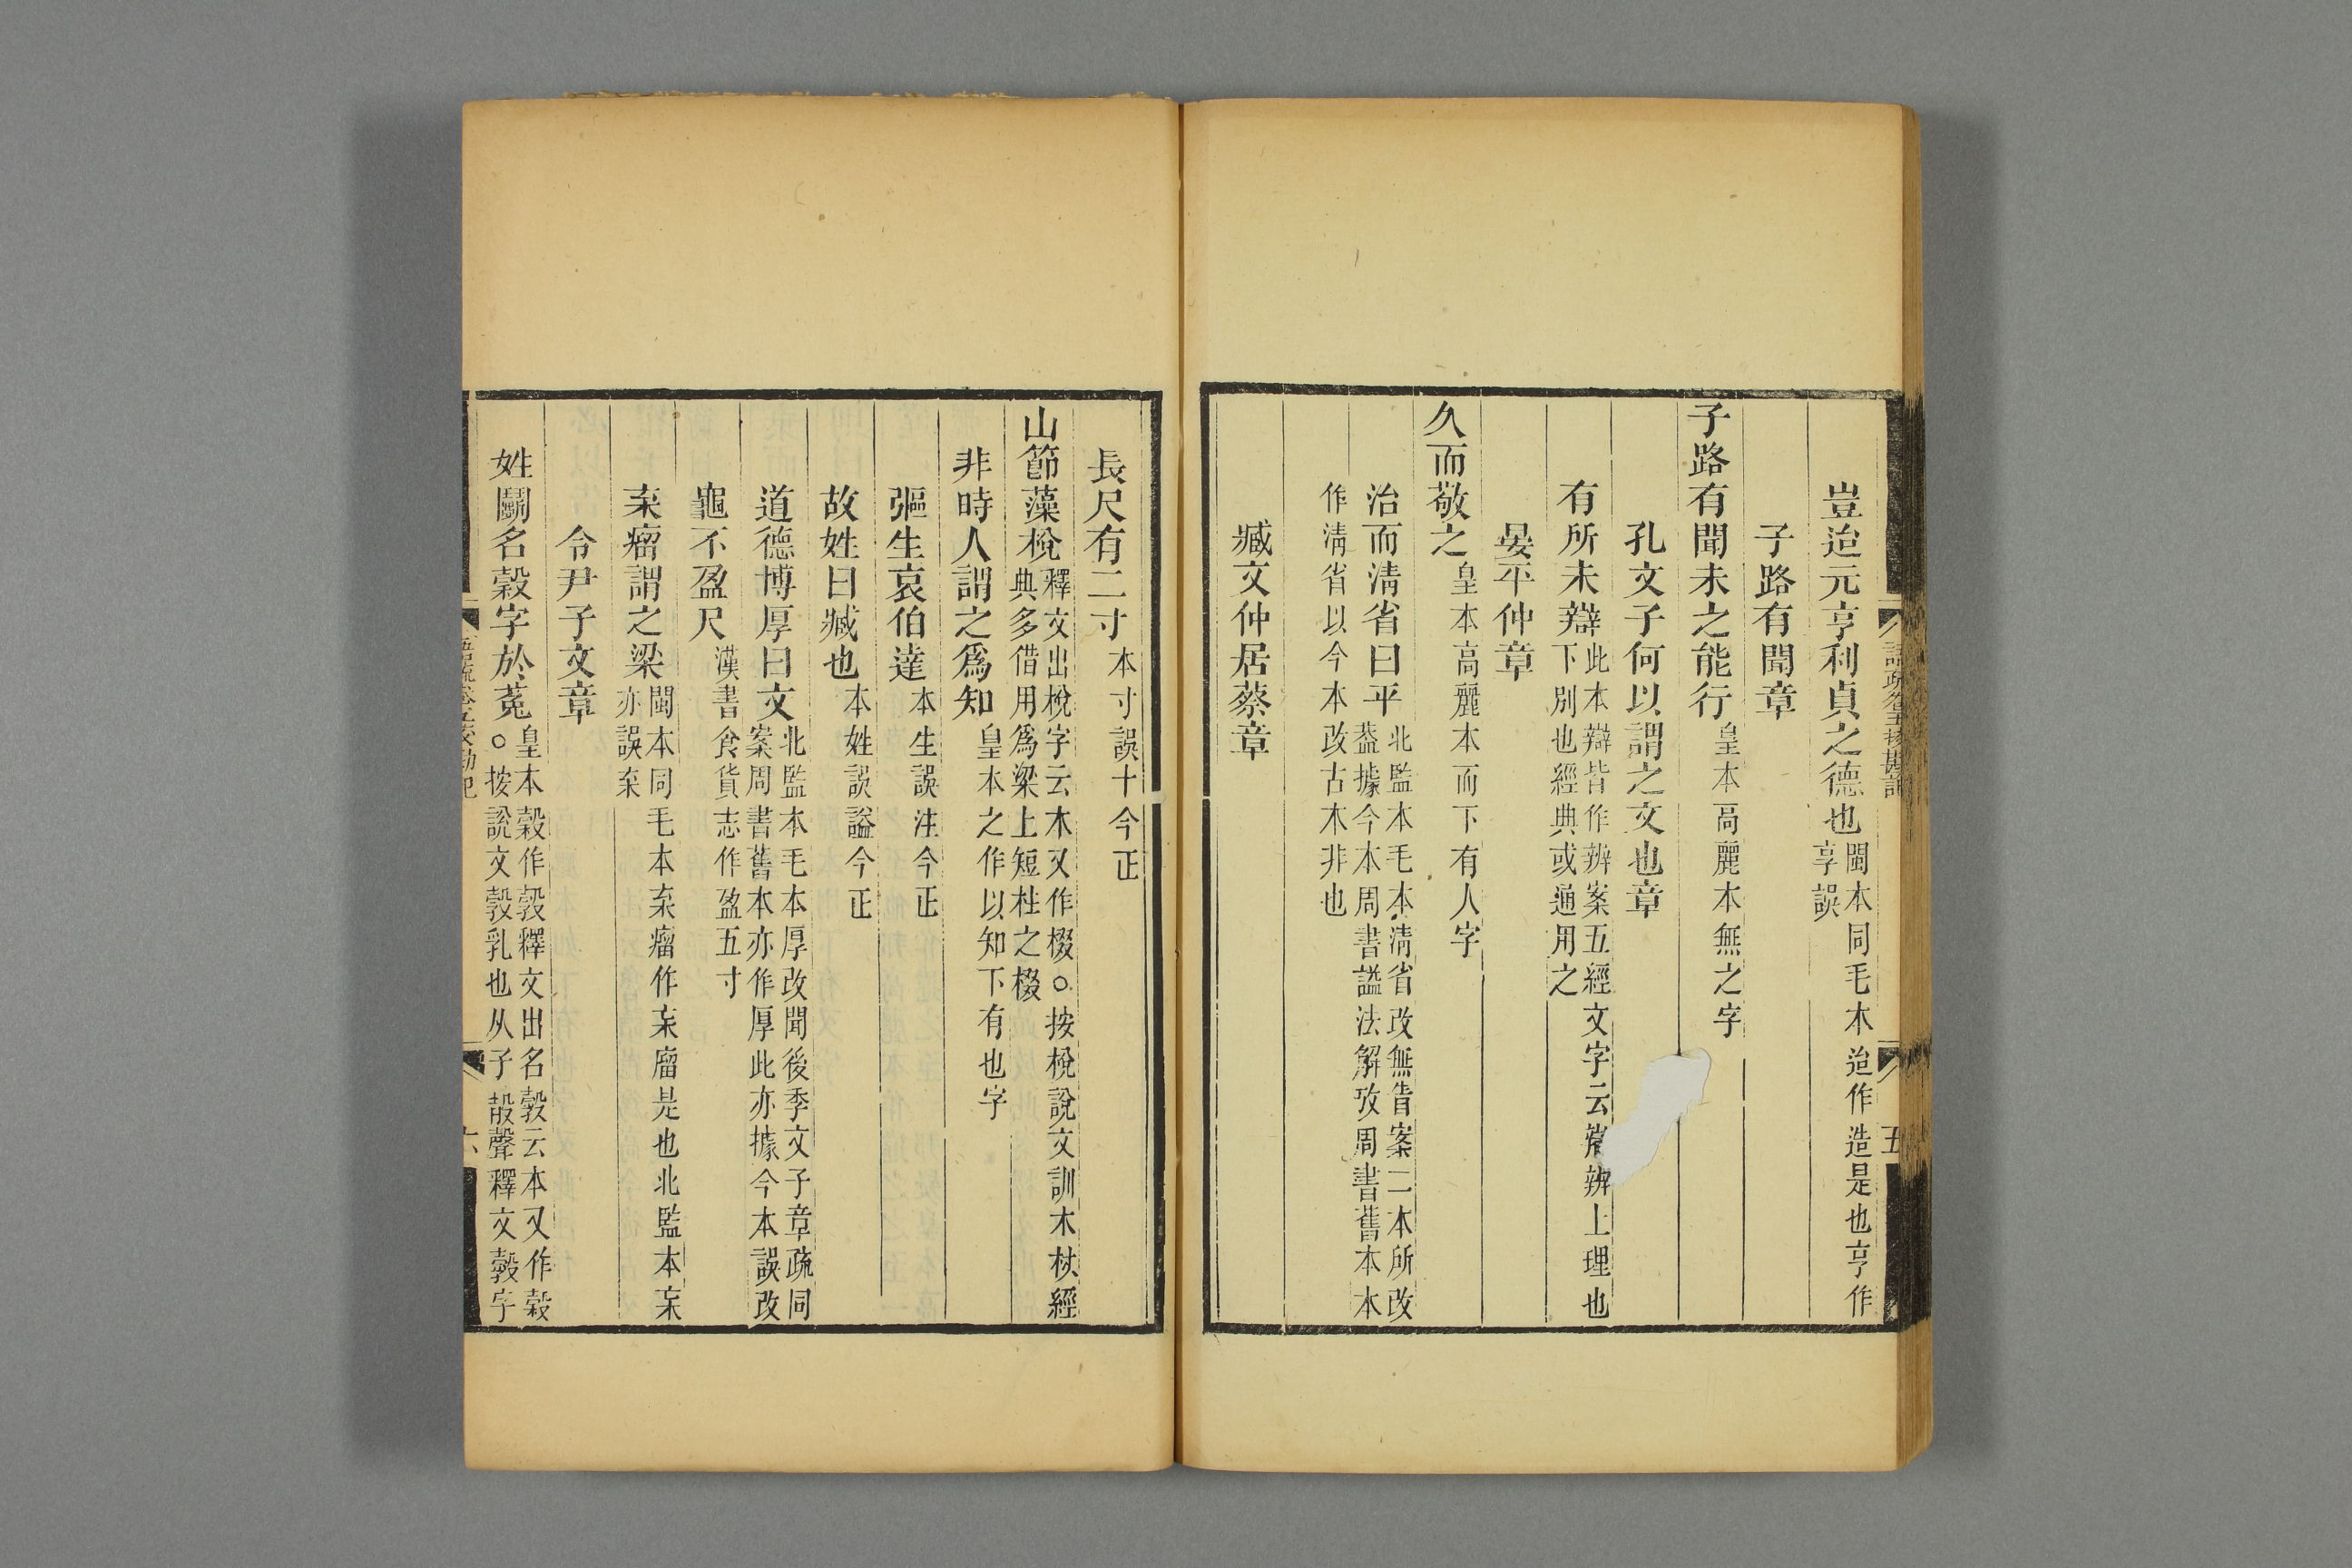 豈迨元亨利貞之德也閩本同毛本迨作造是也亨作
享誤
子路有聞章
子路有聞未之能行皇本高麗本無之字
孔文子何以謂之文也章
有所未辯此本辯皆作辨案五經文字云辨上理也
下別也經典或通用之
晏平仲章
久而敬之皇本高麗本而下有人字
治而淸省曰平北監本毛本淸省改無眚案二本所改
葢據今本周書諡法解攷周書舊本本
作淸省以今本改古本非也
臧文仲居蔡章
五
長尺有二寸本寸誤十今正
山節藻梲釋文出梲字云本又作棳○按梲說文訓木杖經
典多借用爲梁上短柱之棳
非時人謂之爲知皇本之作以知下有也字
彄生哀伯達本生誤注今正
故姓曰臧也本姓誤諡今正
道德博厚曰文北監本毛本厚改聞後季文子章疏同
案周書舊本亦作厚此亦據今本誤改
龜不盈尺漢書食貨志作盈五寸
㭒瘤謂之梁閩本同毛本㭒瘤作㭒廇是也北監本㭒
亦誤㭒
令尹子文章
姓鬭名穀字於菟皇本穀作㝅釋文出名㝅云本又作穀
○按說文㝅乳也从子㱿聲釋文㝅字
六